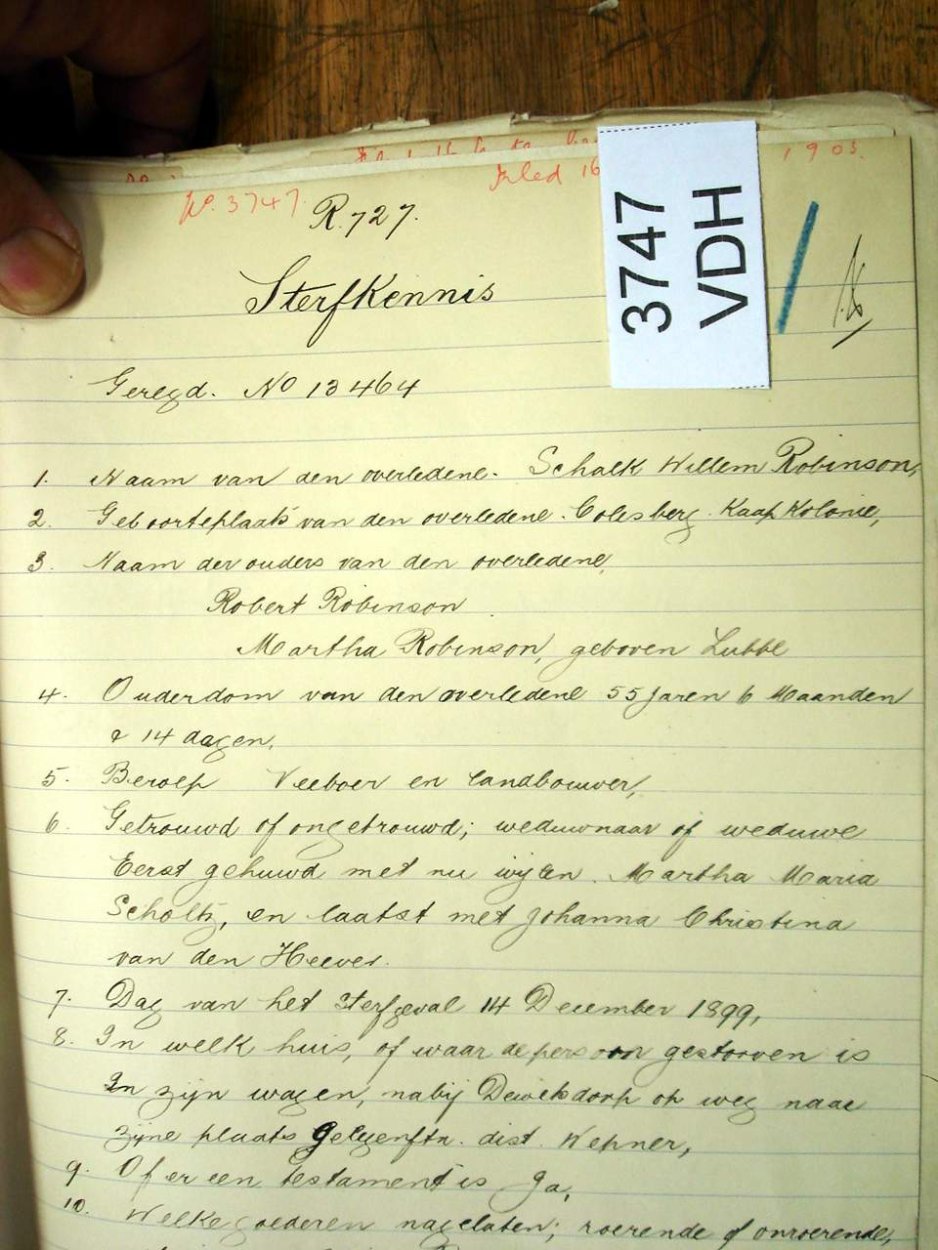 No. 3747. Filed 16 1903.
R.727.
3747
VDH
Sterfkennis
Geregd. No 13464
1. Naam van den overledene. Schalk Willem Robinson,
2. Geboorteplaats van den overledene. Colesberg. Kaap Kolonie,
3. Naam der ouders van den overledene,
Robert Robinson
Martha Robinson, geboren Lubbe
4. Ouderdom van den overledene 55 Jaren 6 Maanden
& 14 dagen,
5. Beroep Veeboer en landbouwer,
6. Getrouwd of ongetrouwd; weduwnaar of weduwe
Eerst gehuwd met nu wijlen. Martha Maria
Scholtz, en laatst met Johanna Christina
van den Heever.
7. Dag van het Sterfgeval 14 December 1899,
8. In welk huis, of waar de persoon gestorven is
In zijn wagen, nabij Dewetsdorp op weg naar
zijne plaats dist. Wepener,
9. Of er een testament is Ja,
10. Welke goederen nagelaten; roerende of onroerende,